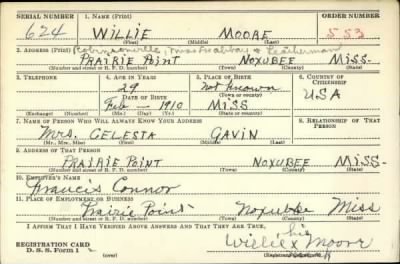 SERIAL NUMBER 1. NAME (Print) ORDER NUMBER
624 WILLIE MOORE 553
(First) (Middle) (Last)
2. ADDRESS (Print)
PRAIRIE POINT NOXUBEE MISS-
(Number and street or R. F. D. number) (Town) (County) (State)
3. TELEPHONE 4. AGE IN YEARS 5. PLACE OF BIRTH 6. COUNTRY OF CITIZENSHIP
29 Not Known
DATE OF BIRTH (Town or county) USA
Feb - 1910 MISS
(Exchange) (No.) (Mo.) (Day) (Yr.) (State or country)
7. NAME OF PERSON WHO WILL ALWAYS KNOW YOUR ADDRESS 8. RELATIONSHIP OF THAT PERSON
Mrs. CELESTA GAVIN
(Mr., Mrs., Miss) (First) (Middle) (Last)
9. ADDRESS OF THAT PERSON
PRAIRIE POINT NOXUBEE MISS-
(Number and street or R. F. D. number) (Town) (County) (State)
10. EMPLOYER'S NAME
Francis Connor
11. PLACE OF EMPLOYMENT OR BUSINESS
Prairie Point Noxubee Miss
(Number and street or R. F. D. number) (Town) (County) (State)
I AFFIRM THAT I HAVE VERIFIED ABOVE ANSWERS AND THAT THEY ARE TRUE.
his
REGISTRATION CARD Willie x Moore
D. S. S. Form 1